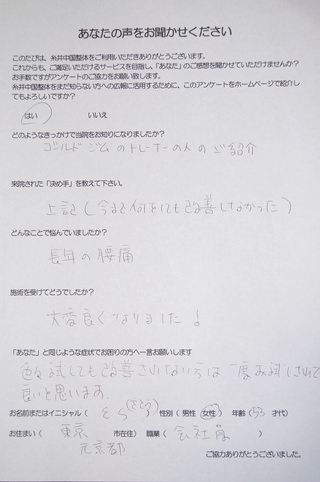 あなたの声をお聞かせください
このたびは、糸井中国整体をご利用いただきありがとうございます。
これからも、ご満足いただけるサービスを目指し、「あなた」のご感想を聞かせていただけませんか?
お手数ですがアンケートのご協力をお願い致します。
糸井中国整体をまだ知らない方への広報に活用するために、このアンケートをホームページで紹介し
てもよろしいですか?
はい いいえ
どのようなきっかけで当院をお知りになりましたか?
ゴールドジムのトレーナーの人のご紹介
来院された「決め手」を教えて下さい。
上記(今まで何をしても改善しなかった)
どんなことで悩んでいましたか?
長年の腰痛
施術を受けてどうでしたか?
大変良くなりました!
「あなた」と同じような症状でお困りの方へ一言お願いします
色々試しても改善されない方は一度お試しされて
良いと思います。
お名前またはイニシャル( ) 性別(男性 女性) 年齢( 才代)
お住まい( 東京 市在住) 職業( 会社員 )
元京都
ご協力ありがとうございました。